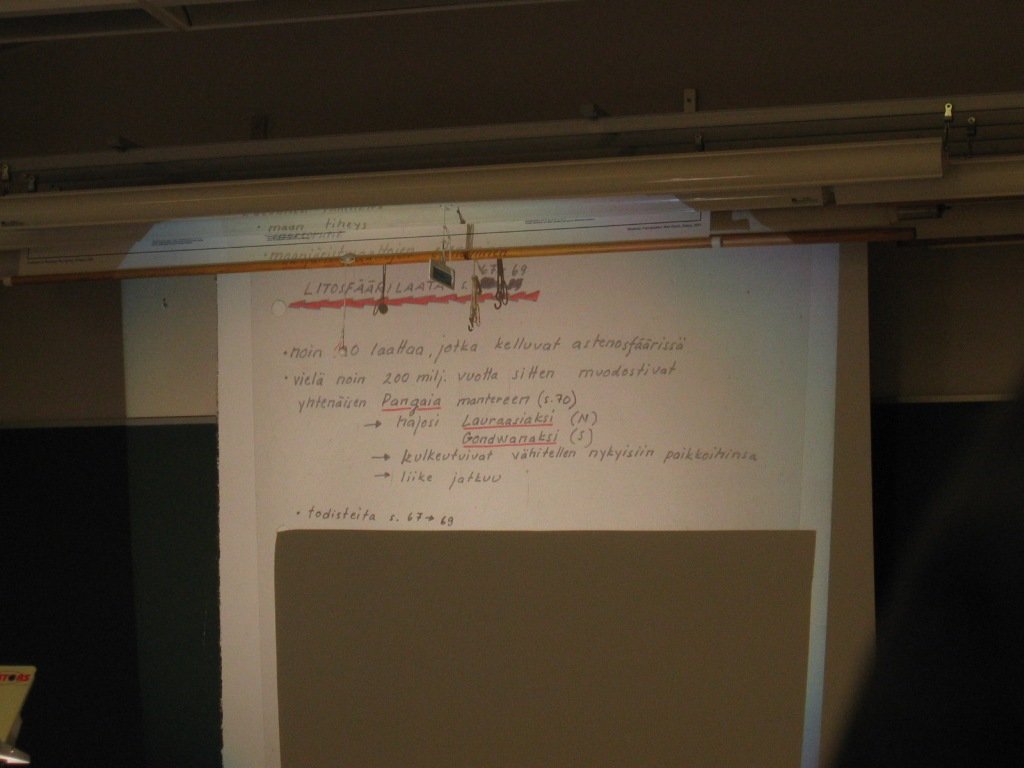 • maan tiheys
LITOSFÄÄRILAATAT s. 67 → 69
• noin 30 laattaa, jotka kelluvat astenosfäärissä
• vielä noin 200 milj. vuotta sitten muodostivat
yhtenäisen Pangaia mantereen (s.70)
→ hajosi Lauraasiaksi (N)
Gondwanaksi (S)
→ kulkeutuivat vähitellen nykyisiin paikkoihinsa
→ liike jatkuu
• todisteita s. 67 → 69